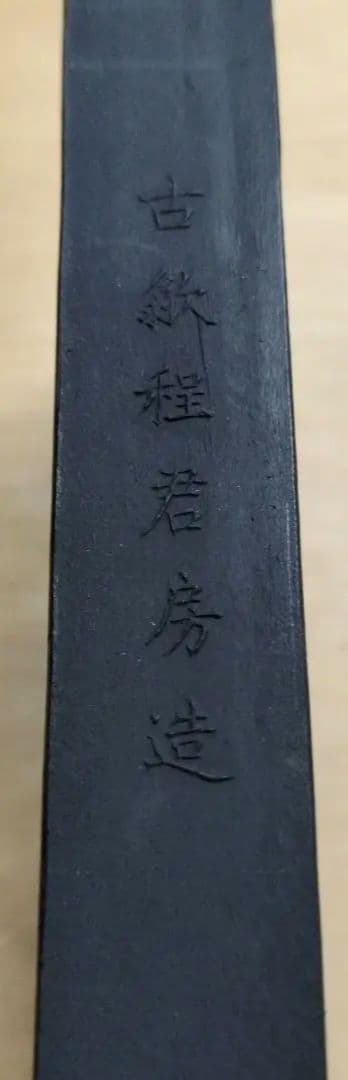 古歙程君房造